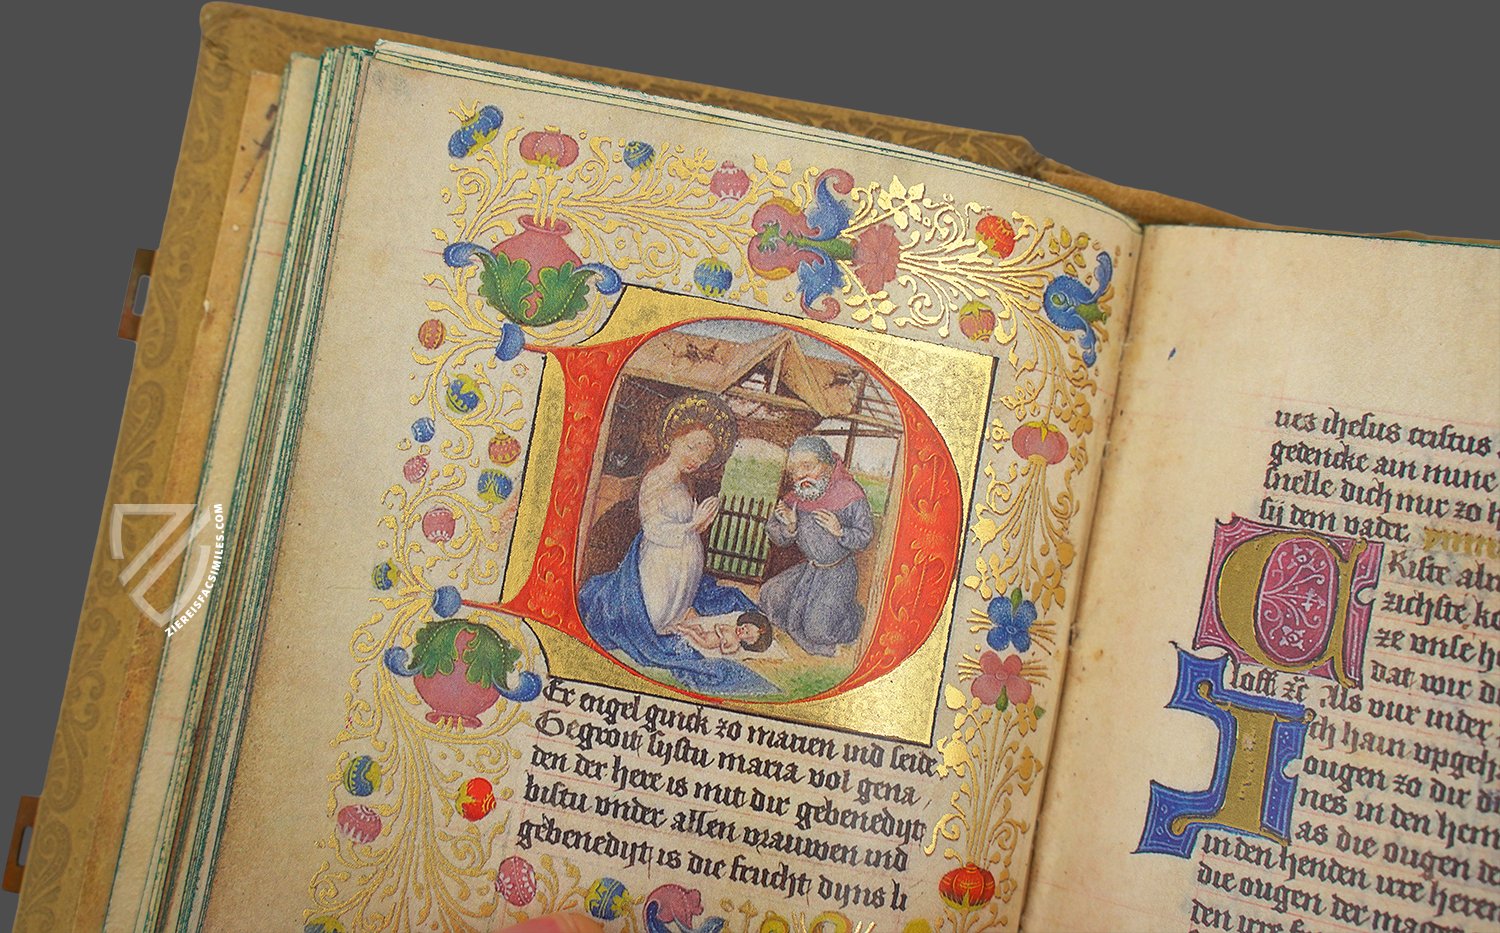 Er engel ginck zo marien ind seide
Gegroit sijstu maria vol gena
den der here is mit dir gebenedijt
bistu vnder allen vrauwen ind
gebenedijt is die frucht dijns li
ihesus cristus
gedencke ain mine
snelle dich mir zo h
sij dem vader.
Kriste alm
zichste ko
ze vnse h
dat wir du
loffi zc Als wir inder
Ich hain vpgeh
ougen zo dir di
nes in den hem
as die ougen der
in den henden irre heren
die ougen der maget
den irre
ZIEREISFACSIMILES.COM